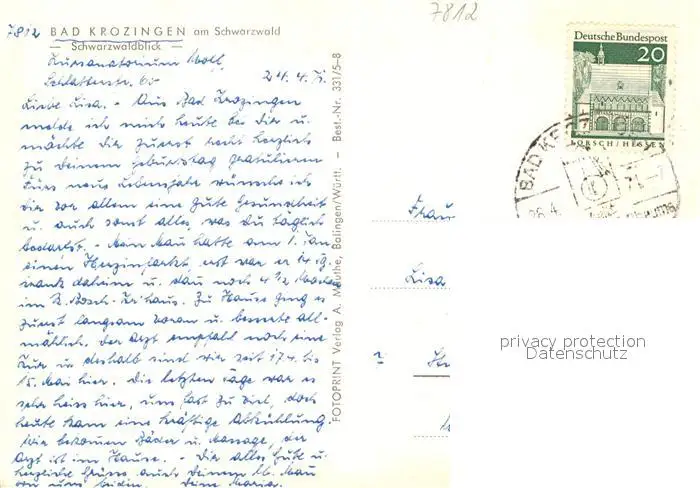 7812
7812 BAD KROZINGEN am Schwarzwald
Schwarzwaldblick
Kursanatorium Wolf,
Schlatterstr.
24.4.71.
Liebe Lisa. - Aus Bad Krozingen
melde ich mich heute bei dir u.
möchte dir zuerst recht herzlich
zu deinem Geburtstag gratulieren
Fürs neue Lebensjahr wünsche ich
dir vor allem eine gute Gesundheit
u. auch sonst alles, was du täglich
bedarfst. - Mein Mann hatte am 1. Jan.
einen Herzinfarkt, erst war er
krank daheim u. dann noch 4 1/2 Wochen
im R. Bosch-Kr'haus. Zu Hause ging es
zuerst langsam voran u. besserte all-
mählich. Der Arzt empfahl noch eine
Kur u. deshalb sind wir seit 17.4. bis
15. Mai hier. Die letzten Tage war es
sehr heiss hier, uns fast zu viel, doch
heute kam eine kräftige Abkühlung.
Wir bekommen Bäder u. Massage, der
Arzt ist im Hause. - Dir alles Gute u.
herzliche Grüsse auch Deinem lb. Mann
von uns beiden. Deine Maria.
FOTOPRINT Verlag A. Mauthe, Balingen/Württ. — Best.-Nr. 331/5-8
Deutsche Bundespost
20
LORSCH/HESSEN
BAD
26.4.
71-7
Frau
Lisa
?
privacy protection
Datenschutz